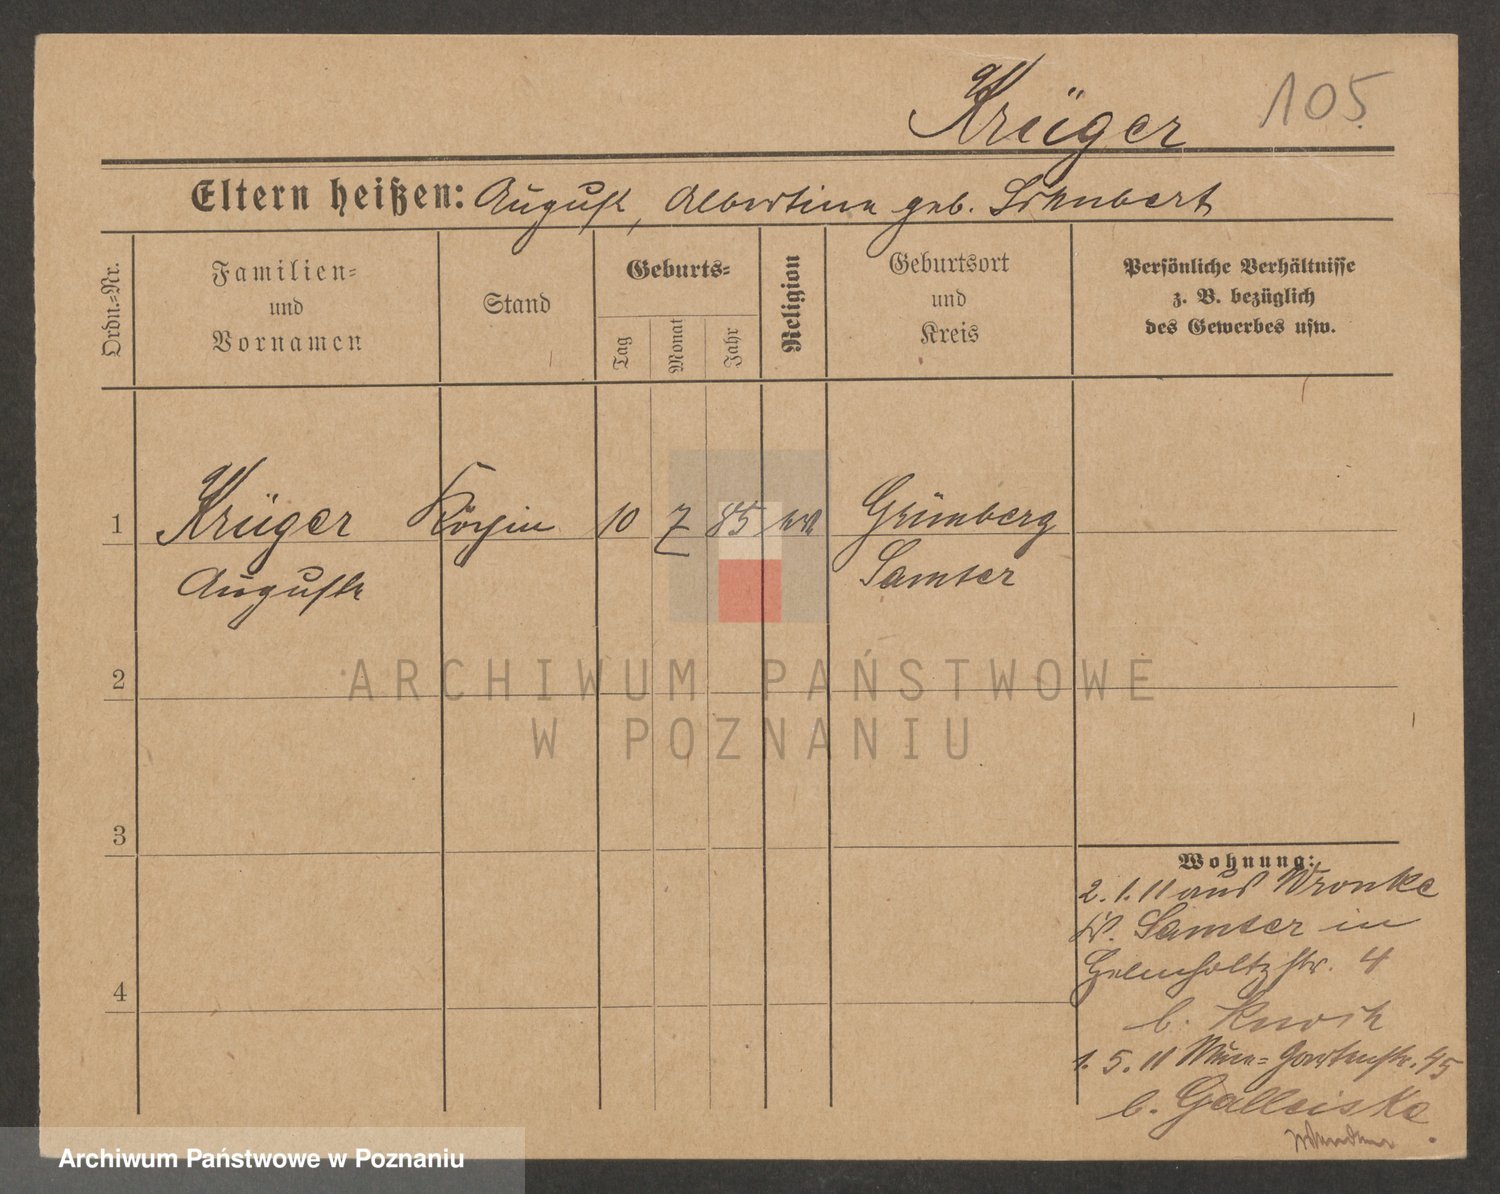 Krüger 105.
Eltern heißen: August, Albertine geb.
Ordn.-Nr.
Familien-
und
Vornamen
Stand
Geburts-
Tag
Monat
Jahr
Religion
Geburtsort
und
Kreis
Persönliche Verhältnisse
z. B. bezüglich
des Gewerbes usw.
1 Krüger Köchin 10 7 85 Grünberg
Auguste Samter
2
3
4
Wohnung:
2.1.11 aus Wronke
Kr. Samter in
Helmholtzstr. 4
b.
1.5.11 Gartenstr. 45
b.
ARCHIWUM PAŃSTWOWE
W POZNANIU
Archiwum Państwowe w Poznaniu